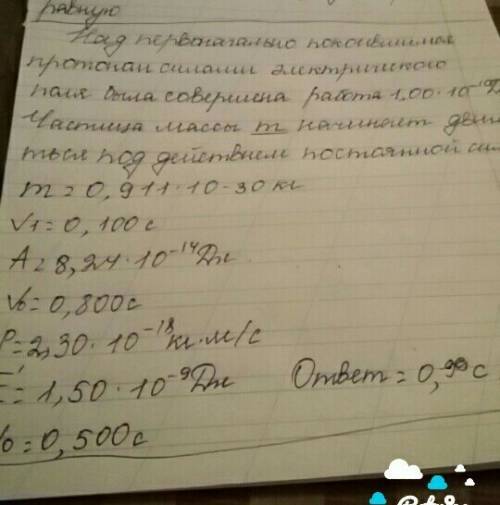 равную
Над первоначально покоившимся
протоном силами электрического
поля была совершена работа 1,00·10⁻¹⁰
Частица массы m начинает
ться под действием постоянной
m = 0,911·10-30 кг
V1 = 0,100 с
A = 8,24·10⁻¹⁴ Дж
V0 = 0,800 с
P = 2,30·10⁻¹⁸ кг·м/с
E = 1,50·10⁻⁹ Дж Ответ = 0,90 с
= 0,500 с